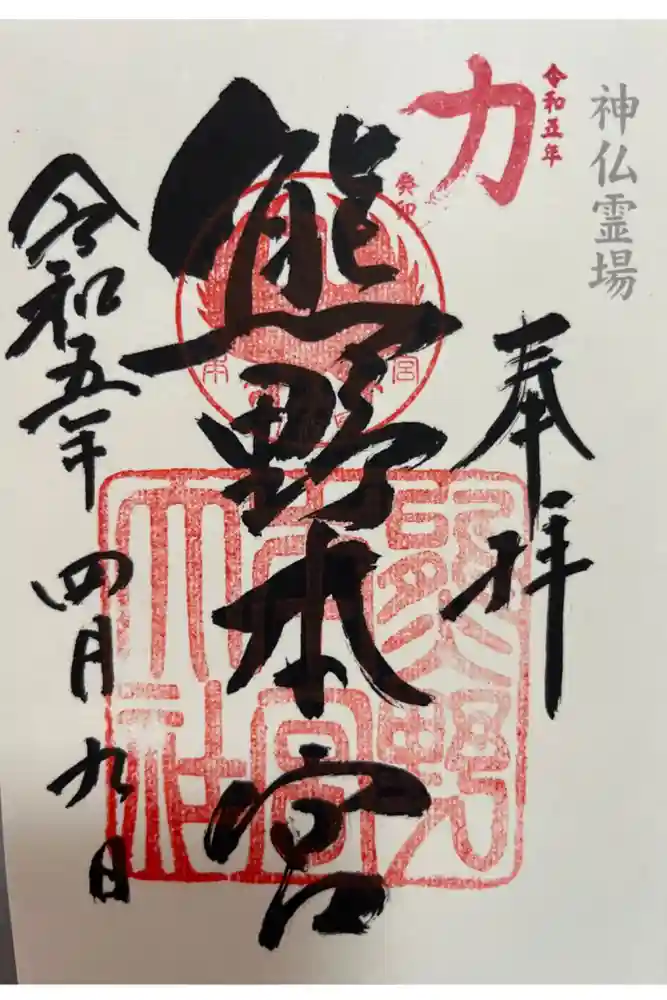 神仏霊場
奉拝
令和五年
癸卯
力
熊野本宮
熊野本宮大社
令和五年四月九日